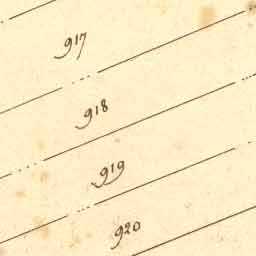 917
918
919
920